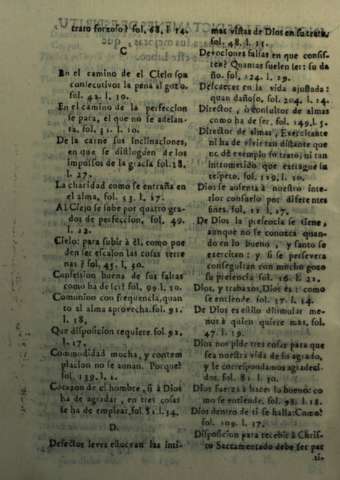 trato forzoso? fol. 68, l. 14.
C
En el camino de el Cielo son
consecutivos la pena al gozo.
fol. 42. l. 10.
En el camino de la perfeccion
se para, el que no se adelan-
ta. fol. 31. l. 10.
De la carne sus inclinaciones,
en que se distinguen de los
impulsos de la gracia fol. 18.
l. 27.
La charidad como se entraña en
el alma, fol. 53. l. 17.
Al Cielo se sube por quatro gra-
dos de perfeccion, fol. 49.
l. 22.
Cielo: para subir à èl, como poe
den ser escalon las cosas terre
nas? fol. 45. l. 30.
Confession buena de sus faltas
como ha de ser? fol. 99. l. 10.
Comunion con frequencia, quan
to al alma aprovecha. fol. 91.
l. 18.
Que disposicion requiere. fol. 92.
l. 17.
Commodidad mucha, y contem
placion no se aunan. Porquè?
fol. 139. l. 1.
Corazon de el hombre, si à Dios
ha de agradar, en tres cosas
se ha de emplear, fol. 81. l. 14.
D.
Defectos leves estorvan las inti-
mas vistas de Dios en su trato.
fol. 48. l. 15.
Devociones falsas en que consis-
ten? Quantas suelen ser: su da
ño. fol. 124. l. 19.
Descaeces en la vida ajustada:
quan dañoso. fol. 204. l. 14.
Director, ò consultor de almas
como ha de ser. fol. 149. l. 5.
Director de almas, y Exercitante
ni ha de vivir tan distante que
no dè exemplo su trato; ni tan
intrometido que estrague su
respeto. fol. 119. l. 10.
Dios se ausenta à nuestro inte-
rior consuelo por diferentes
fines. fol. 11 l. 17.
De Dios la presencia se tiene,
aunque no se conozca quan-
do en lo bueno, y santo se
exerciten: y si se persevera
conseguiran con mucho gozo
su presencia fol. 16. l. 21.
Dios, y trabaxos, Dios es: como
se entiende. fol. 17. l. 14.
De Dios es estilo dissimular me-
nos à quien quiere mas, fol.
47. l. 19.
Dios nos pide tres cosas para que
sea nuestra vida de su agrado,
y le correspondamos agradeci-
dos. fol. 81. l. 10.
Dios fuerza à hacer lo bueno: co
mo se entiende. fol. 98. l. 18.
Dios dentro de sì se halla: Como?
fol. 109. l. 17.
Disposicion para recebir à Chris-
to Sacramentado debe ser par
ti-